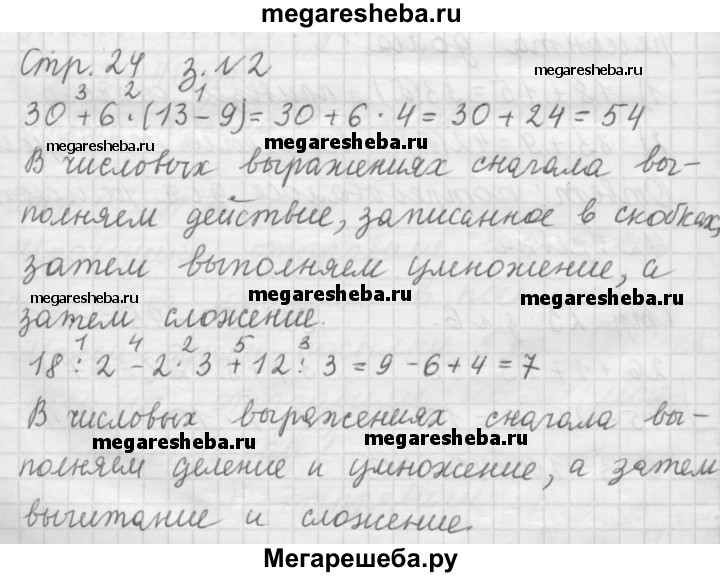 megaresheba.ru
Стр. 24 з. №2
megaresheba.ru
3 2 1
30 + 6 · (13 - 9) = 30 + 6 · 4 = 30 + 24 = 54
megaresheba.ru megaresheba.ru
В числовых выражениях сначала вы-
полняем действие, записанное в скобках,
затем выполняем умножение, а
megaresheba.ru megaresheba.ru megaresheba.ru
затем сложение.
1 4 2 5 3
18 : 2 - 2 · 3 + 12 : 3 = 9 - 6 + 4 = 7
В числовых выражениях сначала вы-
megaresheba.ru megaresheba.ru
полняем деление и умножение, а затем
вычитание и сложение.
Мегарешеба.ру